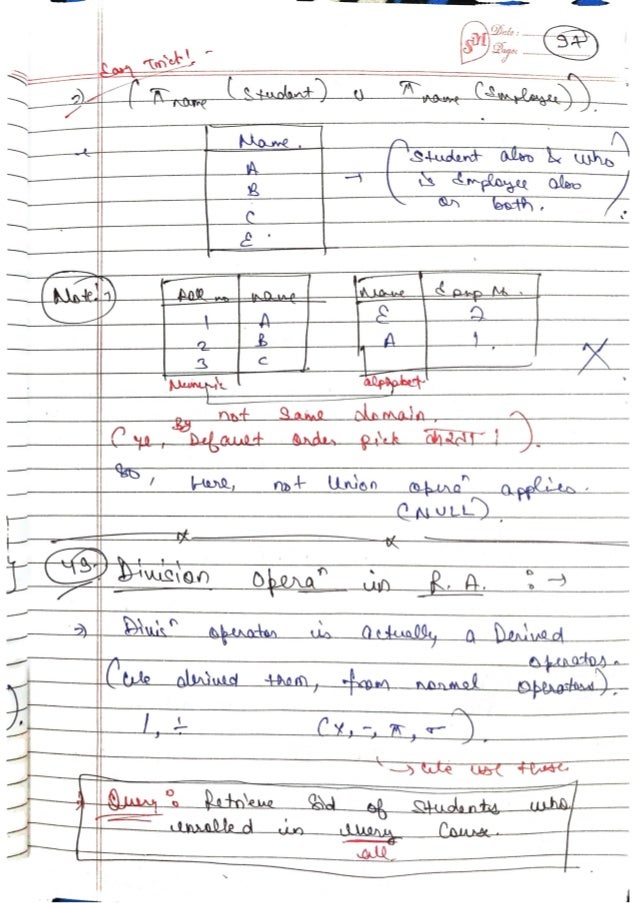 SM Date:
Page: 97
Easy Trick! -
=> ( π name (Student) ∪ π name (Employee) ).
Name.
A
B
C
E.
→ (Student also & who
is Employee also
or both.)
Note:→
Roll no name
1 A
2 B
3 C
Name Emp No.
E 2
A 1.
X
Numeric alphabet
not same domain.
(ye, By Default order pick करता।).
So, here, not Union operaⁿ applies.
(NULL).
x x
49. Division Operaⁿ in R.A. : →
=> Divisⁿ operator is actually a Derived
operator.
(we derived them, from normal operators).
/, ÷ (X, -, π, σ).
↳ we use these
=> Query: Retrieve Sid of Students who
enrolled in every course.
all